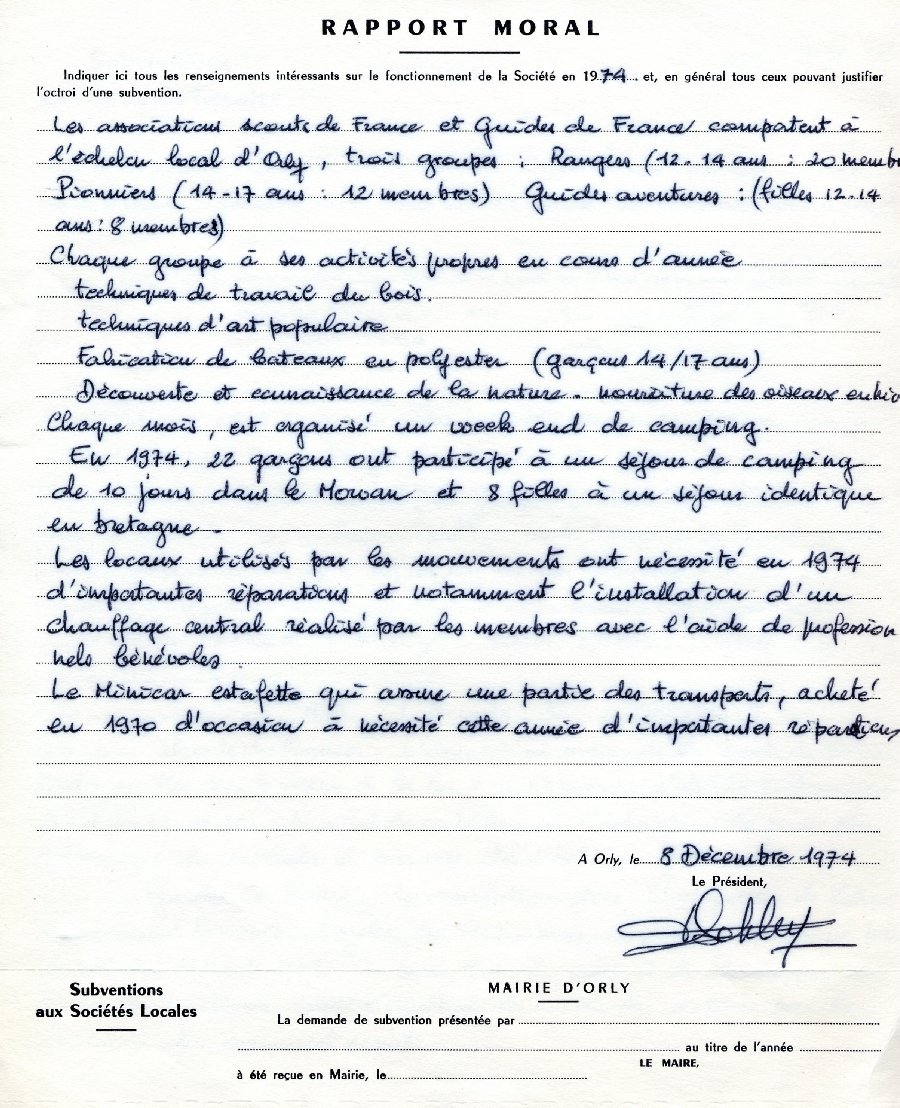 RAPPORT MORAL
Indiquer ici tous les renseignements intéressants sur le fonctionnement de la Société en 1974 et, en général tous ceux pouvant justifier
l'octroi d'une subvention.
Les associations scouts de France et Guides de France comportent à
l'échelon local d'Orly, trois groupes : Rangers (12-14 ans : 20 memb
Pionniers (14-17 ans : 12 membres) Guides aventures : (filles 12-14
ans : 8 membres)
Chaque groupe à ses activités propres en cours d'année
techniques de travail du bois.
techniques d'art populaire
Fabrication de bateaux en polyester (garçons 14/17 ans)
Découverte et connaissance de la nature. nourriture des oiseaux en hiv
Chaque mois, est organisé un week end de camping.
En 1974, 22 garçons ont participé à un séjour de camping
de 10 jours dans le Morvan et 8 filles à un séjour identique
en bretagne.
Les locaux utilisés par les mouvements ont nécessité en 1974
d'importantes réparations et notamment l'installation d'un
chauffage central réalisé par les membres avec l'aide de profession
nels bénévoles.
Le Minicar estafette qui assure une partie des transports, acheté
en 1970 d'occasion à nécessité cette année d'importantes réparations
A Orly, le 8 Décembre 1974
Le Président,
Subventions
aux Sociétés Locales
MAIRIE D'ORLY
La demande de subvention présentée par
au titre de l'année
LE MAIRE,
à été reçue en Mairie, le